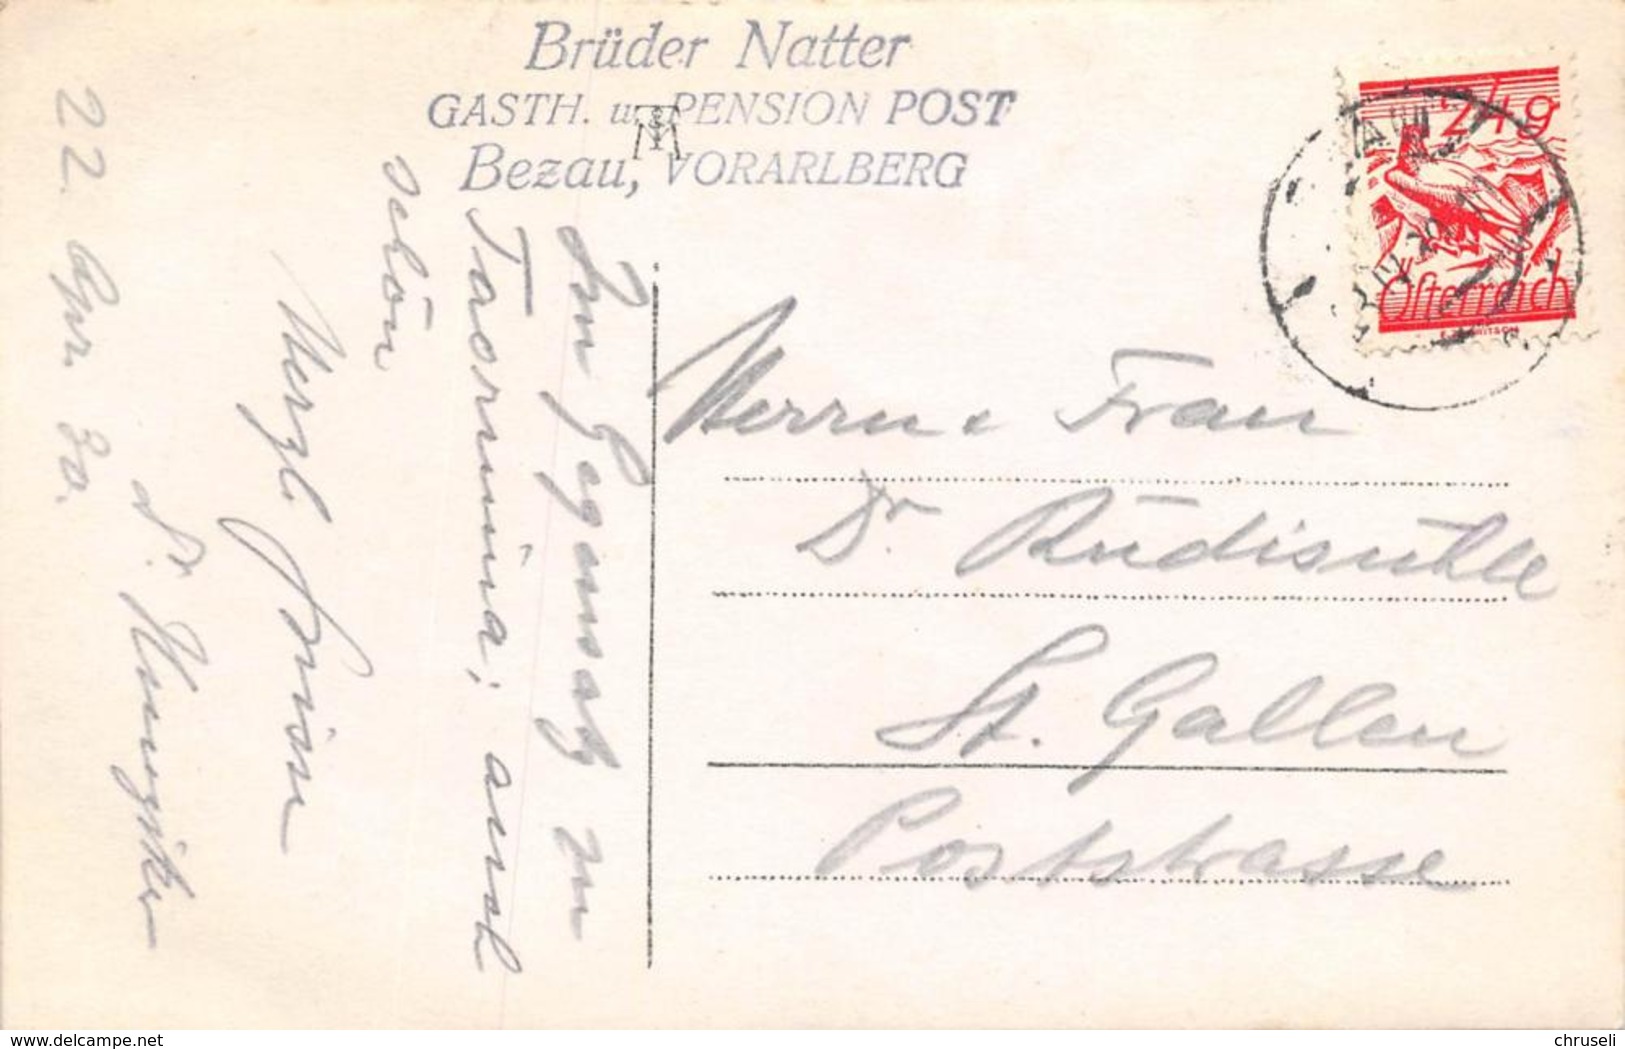 Brüder Natter
GASTH. u. PENSION POST
Bezau, VORARLBERG
24 g
Österreich
Im Gegensatz zu
Taormina, auch
schön
Herzl. Grüsse
22. Apr. 30.
Herrn & Frau
Dr Rüdisühle
St. Gallen
Poststrasse
delcampe.net
chruseli